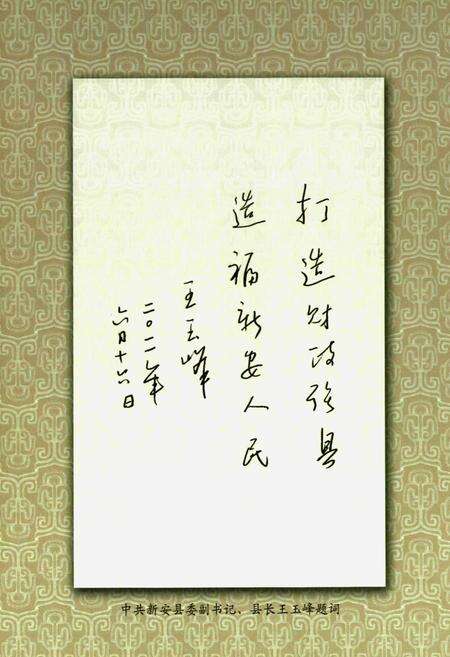 打造财政强县
造福新安人民
王玉峰
二〇一一年
六月十六日
中共新安县委副书记、县长王玉峰题词